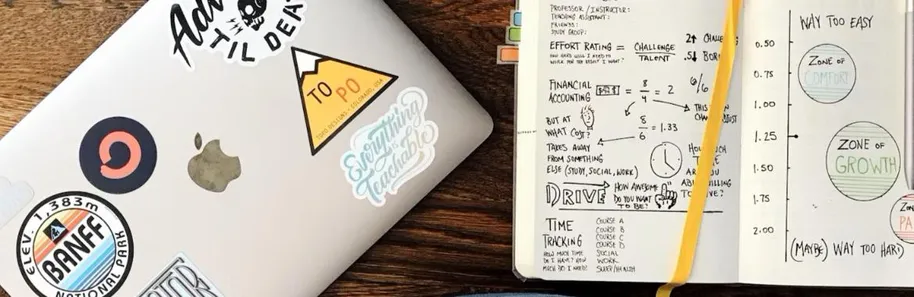 Adv
'TIL DEA
TO PO
TOPO DESIGNS • COLORADO, USA
Everything
is
Teachable
ELEV. 1,383m
BANFF
NATIONAL PARK
ATOR
PROFESSOR / INSTRUCTOR:
TEACHING ASSISTANT:
FRIENDS:
STUDY GROUP:
EFFORT RATING = CHALLENGE
TALENT
2↑ CHALLE
.5↓ BOR
FINANCIAL
ACCOUNTING = 8/4 = 2
6/6
THIS
BUT AT
WHAT COST?
8/6 = 1.33
TAKES AWAY
FROM SOMETHING
ELSE (STUDY, SOCIAL, WORK)
HOW
TIME
ARE
WILLING
DRIVE
HOW AWESOME
DO YOU WANT
TO BE?
TIME
TRACKING
HOW MUCH TIME
DO I HAVE? HOW
MUCH DO I NEED?
COURSE A
COURSE B
COURSE C
COURSE D
SOCIAL
WORK
WAY TOO EASY
0.50
0.75
1.00
1.25
1.50
1.75
2.00
ZONE OF
COMFORT
ZONE OF
GROWTH
ZON
PA
(MAYBE) WAY TOO HARD